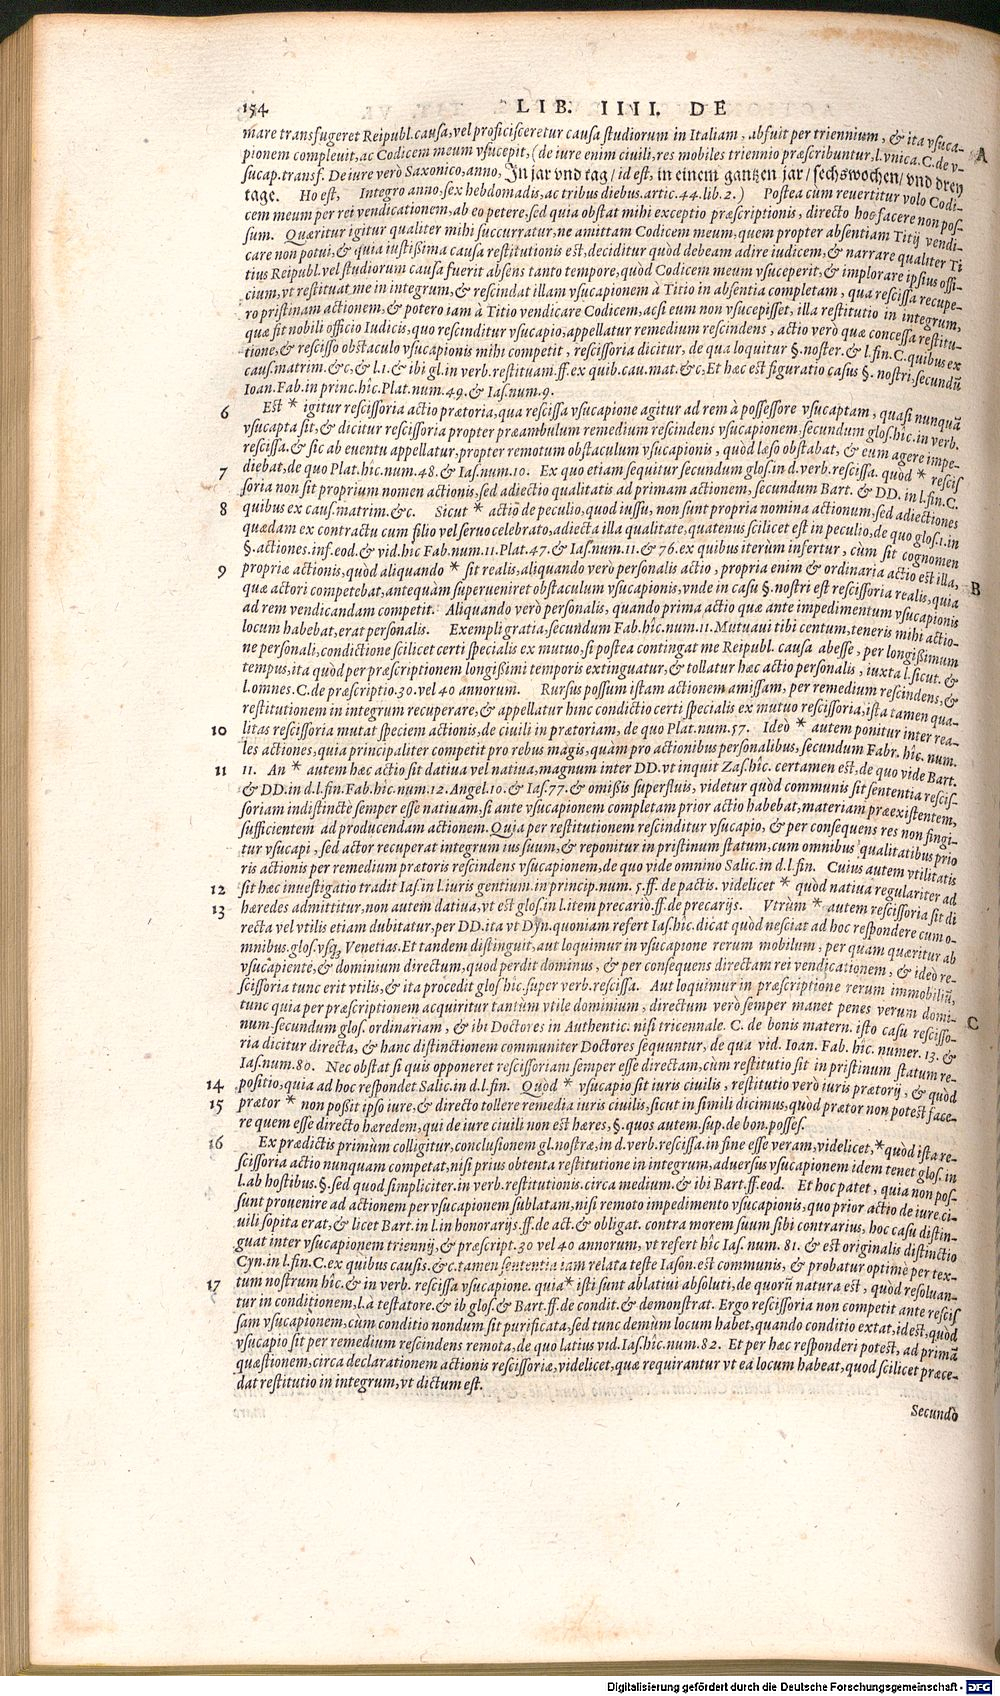 154 LIB. IIII. DE
mare transfugeret Reipubl. causa, vel proficisceretur causa studiorum in Italiam, absuit per triennium, & ita vsuca-
pionem compleuit, ac Codicem meum vsucepit, (de iure enim ciuili, res mobiles triennio præscribuntur, l. vnica. C. de v- A
sucap. transf. De iure verò Saxonico, anno, In jar vnd tag / id est, in einem gantzen jar / sechswochen / vnd drey
tage. Ho est, Integro anno, sex hebdomadis, ac tribus diebus. artic. 44. lib. 2.) Postea cum reuertitur volo Codi-
cem meum per rei vendicationem, ab eo petere, sed quia obstat mihi exceptio præscriptionis, directo hoc facere non pos-
sum. Quæritur igitur qualiter mihi succurratur, ne amittam Codicem meum, quem propter absentiam Titij vendi-
care non potui, & quia iustißima causa restitutionis est, deciditur quòd debeam adire iudicem, & narrare qualiter Ti
tius Reipubl. vel studiorum causa fuerit absens tanto tempore, quòd Codicem meum vsuceperit, & implorare ipsius offi-
cium, vt restituat me in integrum, & rescindat illam vsucapionem à Titio in absentia completam, qua rescissa recupe-
ro pristinam actionem, & potero iam à Titio vendicare Codicem, acsi eum non vsucepisset, illa restitutio in integrum,
quæ fit nobili officio Iudicis, quo rescinditur vsucapio, appellatur remedium rescindens, actio verò quæ concessa restitu-
tione, & rescisso obstaculo vsucapionis mihi competit, rescissoria dicitur, de qua loquitur §. noster. & l. fin. C. quibus ex
caus. matrim. &c, & l. 1. & ibi gl. in verb. restituam. ff. ex quib. cau. mat. &c, Et hæc est figuratio casus §. nostri, secundũ
Ioan. Fab. in princ. hîc. Plat. num. 49. & Ias. num. 9.
6 Est * igitur rescissoria actio prætoria, qua rescissa vsucapione agitur ad rem à possessore vsucaptam, quasi nunquã
vsucapta sit, & dicitur rescissoria propter præambulum remedium rescindens vsucapionem, secundum glos. hîc. in verb.
rescissa. & sic ab euentu appellatur, propter remotum obstaculum vsucapionis, quòd læso obstabat, & eum agere impe-
7 diebat, de quo Plat. hîc. num. 48. & Ias. num. 10. Ex quo etiam sequitur secundum glos. in d. verb. rescissa. quòd * rescis
soria non sit proprium nomen actionis, sed adiectio qualitatis ad primam actionem, secundum Bart. & DD. in l. fin. C.
8 quibus ex caus. matrim. &c. Sicut * actio de peculio, quod iussu, non sunt propria nomina actionum, sed adiectiones
quædam ex contractu cum filio vel seruo celebrato, adiecta illa qualitate, quatenus scilicet est in peculio, de quo glos. 1. in
§. actiones. inf. eod. & vid. hîc Fab. num. 11. Plat. 47. & Ias. num. 11. & 76. ex quibus iterùm insertur, cùm sit cognomen
9 propriæ actionis, quòd aliquando * sit realis, aliquando verò personalis actio, propria enim & ordinaria actio est illa,
quæ actori competebat, antequàm superueniret obstaculum vsucapionis, vnde in casu §. nostri est rescissoria realis, quia B
ad rem vendicandam competit. Aliquando verò personalis, quando prima actio quæ ante impedimentum vsucapionis
locum habebat, erat personalis. Exempli gratia, secundum Fab. hîc. num. 11. Mutuaui tibi centum, teneris mihi actio-
ne personali, condictione scilicet certi specialis ex mutuo, si postea contingat me Reipubl. causa abesse, per longißimum
tempus, ita quòd per præscriptionem longißimi temporis extinguatur, & tollatur hæc actio personalis, iuxta l. sicut. &
l. omnes. C. de præscriptio. 30. vel 40 annorum. Rursus possum istam actionem amissam, per remedium rescindens, &
restitutionem in integrum recuperare, & appellatur hinc condictio certi specialis ex mutuo rescissoria, ista tamen qua-
litas rescissoria mutat speciem actionis, de ciuili in prætoriam, de quo Plat. num. 57.
10 Ideò * autem ponitur inter rea-
les actiones, quia principaliter competit pro rebus magis, quàm pro actionibus personalibus, secundum Fabr. hîc. num.
11 11. An * autem hæc actio sit datiua vel natiua, magnum inter DD. vt inquit Zas. hîc. certamen est, de quo vide Bart.
& DD. in d. l. fin. Fab. hîc. num. 12. Angel. 10. & Ias. 77. & omißis superfluis, videtur quòd communis sit sententia rescis-
soriam indistinctè semper esse natiuam, si ante vsucapionem completam prior actio habebat, materiam præexistentem,
sufficientem ad producendam actionem. Quia per restitutionem rescinditur vsucapio, & per consequens res non fingi-
tur vsucapi, sed actor recuperat integrum ius suum, & reponitur in pristinum statum, cum omnibus qualitatibus prio
ris actionis per remedium prætoris rescindens vsucapionem, de quo vide omnino Salic. in d. l. fin. Cuius autem vtilitatis
12 sit hæc inuestigatio tradit Ias. in l. iuris gentium. in princip. num. 5. ff. de pactis. videlicet * quòd natiua regulariter ad
13 hæredes admittitur, non autem datiua, vt est glos. in l. item precariò. ff. de precarijs. Vtrùm * autem rescissoria sit di
recta vel vtilis etiam dubitatur, per DD. ita vt Dyn. quoniam refert Ias. hîc. dicat quòd nesciat ad hoc respondere cum o-
mnibus. glos. vsq; Venetias. Et tandem distinguit, aut loquimur in vsucapione rerum mobilum, per quam quæritur ab
vsucapiente, & dominium directum, quod perdit dominus, & per consequens directam rei vendicationem, & ideò re-
scissoria tunc erit vtilis, & ita procedit glos hîc. super verb. rescissa. Aut loquimur in præscriptione rerum immobiliũ,
tunc quia per præscriptionem acquiritur tantùm vtile dominium, directum verò semper manet penes verum domi-
num. secundum glos. ordinariam, & ibi Doctores in Authentic. nisi tricennale. C. de bonis matern. isto casu rescisso- C
ria dicitur directa, & hanc distinctionem communiter Doctores sequuntur, de qua vid. Ioan. Fab. hîc. numer. 13. &
Ias. num. 80. Nec obstat si quis opponeret rescissoriam semper esse directam, cùm restitutio sit in pristinum statum re-
14 positio, quia ad hoc respondet Salic. in d. l. fin. Quòd * vsucapio sit iuris ciuilis, restitutio verò iuris prætorij, & quòd
15 prætor * non poßit ipso iure, & directo tollere remedia iuris ciuilis, sicut in simili dicimus, quòd prætor non potest face-
re quem esse directo hæredem, qui de iure ciuili non est hæres, §. quos autem. sup. de bon. posses.
16 Ex prædictis primùm colligitur, conclusionem gl. nostræ, in d. verb. rescissa. in fine esse veram, videlicet, * quòd ista re-
scissoria actio nunquam competat, nisi prius obtenta restitutione in integrum, aduersus vsucapionem idem tenet glos. in
l. ab hostibus. §. sed quod simpliciter. in verb. restitutionis. circa medium. & ibi Bart. ff. eod. Et hoc patet, quia non pos-
sunt prouenire ad actionem per vsucapionem sublatam, nisi remoto impedimento vsucapionis, quo prior actio de iure ci-
uili sopita erat, & licet Bart. in l. in honorarijs. ff. de act. & obligat. contra morem suum sibi contrarius, hoc casu distin-
guat inter vsucapionem triennij, & præscript. 30 vel 40 annorum, vt refert hîc Ias. num. 81. & est originalis distinctio
Cyn. in l. fin. C. ex quibus causis. &c. tamen sententia iam relata teste Iason. est communis, & probatur optimè per tex-
17 tum nostrum hîc. & in verb. rescissa vsucapione. quia * isti sunt ablatiui absoluti, de quorũ natura est, quòd resoluan-
tur in conditionem, l. à testatore. & ib glos. & Bart. ff. de condit. & demonstrat. Ergo rescissoria non competit ante rescis
sam vsucapionem, cùm conditio nondum sit purificata, sed tunc demùm locum habet, quando conditio extat, id est, quòd
vsucapio sit per remedium rescindens remota, de quo latius vid. Ias. hîc. num. 82. Et per hæc responderi potest, ad primã
quæstionem, circa declarationem actionis rescissoriæ, videlicet, quæ requirantur vt ea locum habeat, quod scilicet præce-
dat restitutio in integrum, vt dictum est.
Secundò
Digitalisierung gefördert durch die Deutsche Forschungsgemeinschaft - DFG